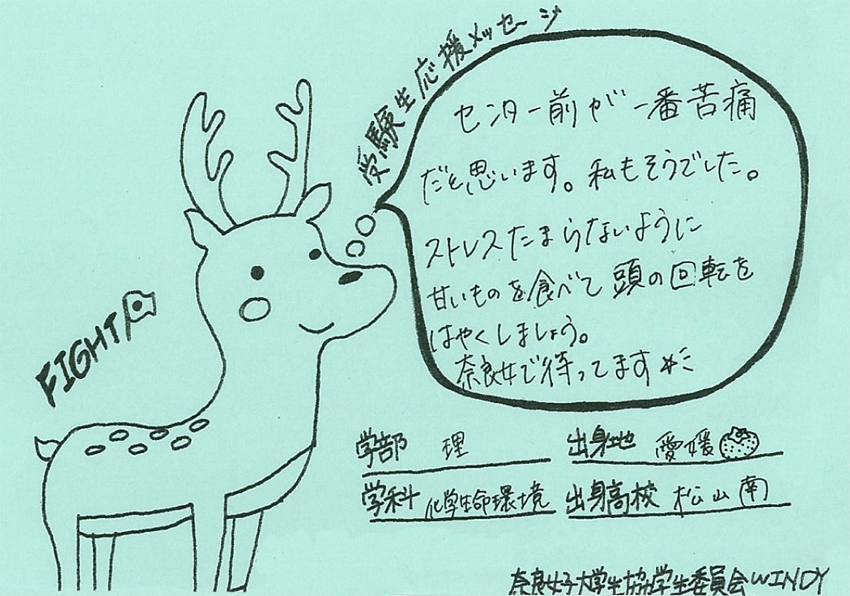 受験生応援メッセージ
センター前が一番苦痛
だと思います。私もそうでした。
ストレスたまらないように
甘いものを食べて頭の回転を
はやくしましょう。
奈良女で待ってます
FIGHT
学部 理
出身地 愛媛
学科 化学生命環境
出身高校 松山南
奈良女子大学生協学生委員会WINDY